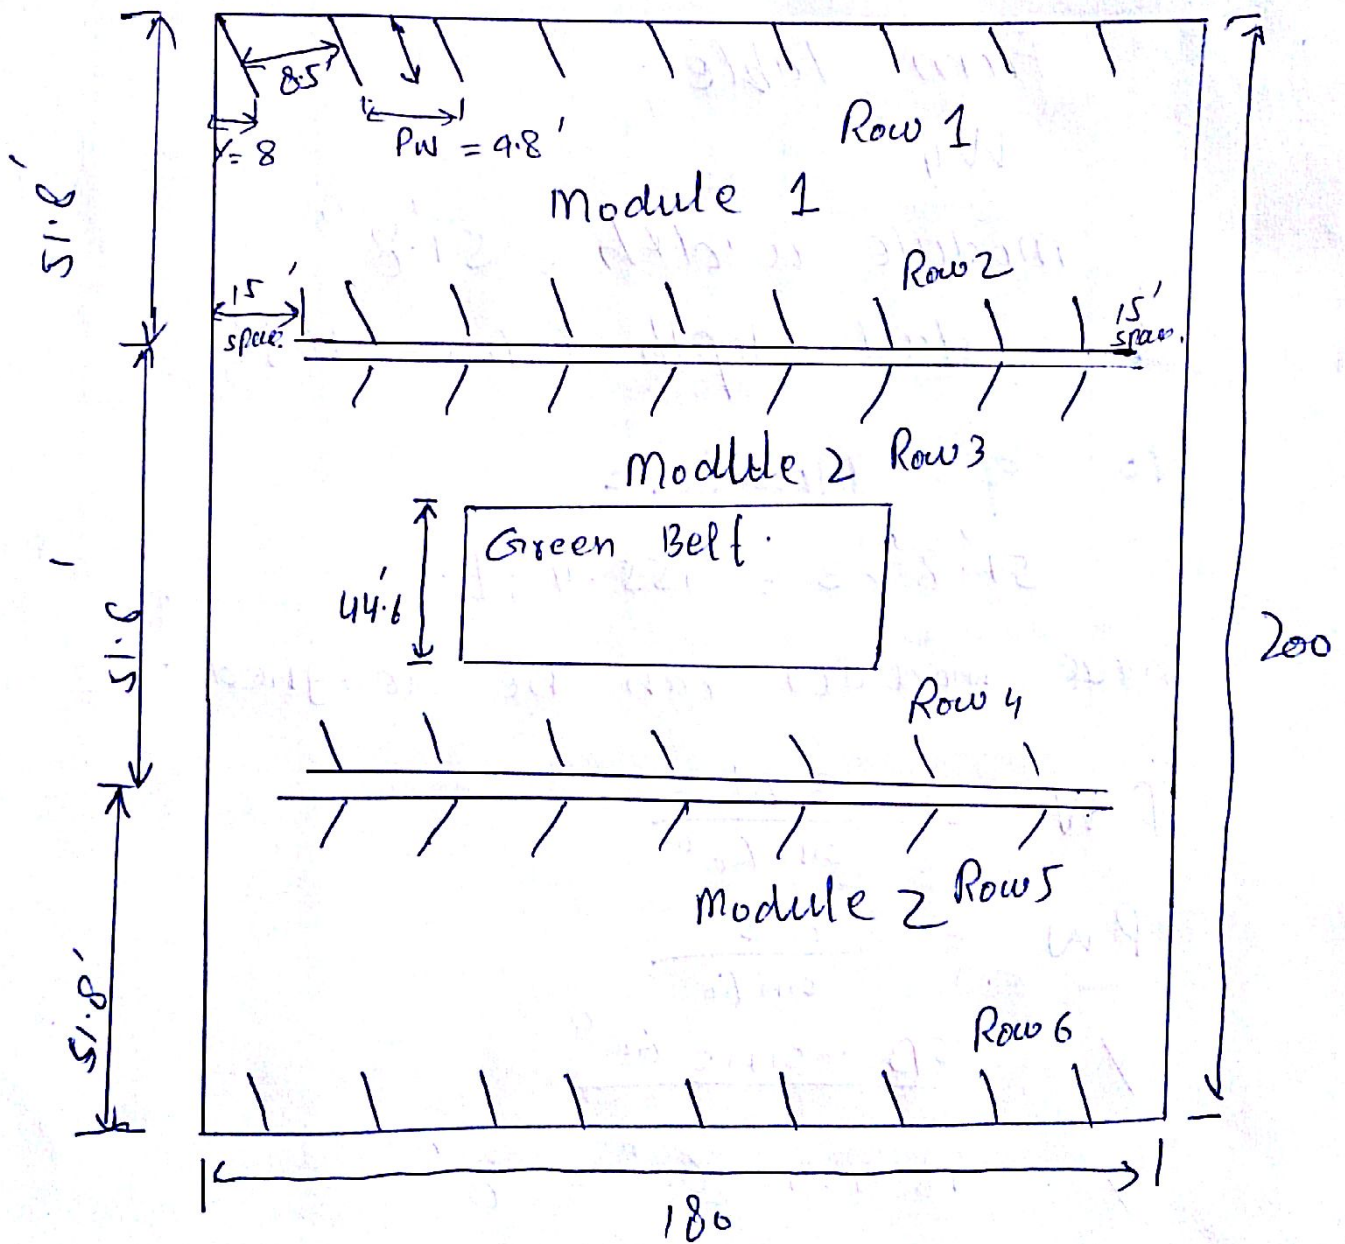 8.5'
Y = 8
PW = 9.8'
Row 1
51.8'
Module 1
Row 2
15'
space
15'
space.
Module 2 Row 3
Green Belt.
44.6'
51.6'
200
Row 4
Module 2 Row 5
51.8'
Row 6
180